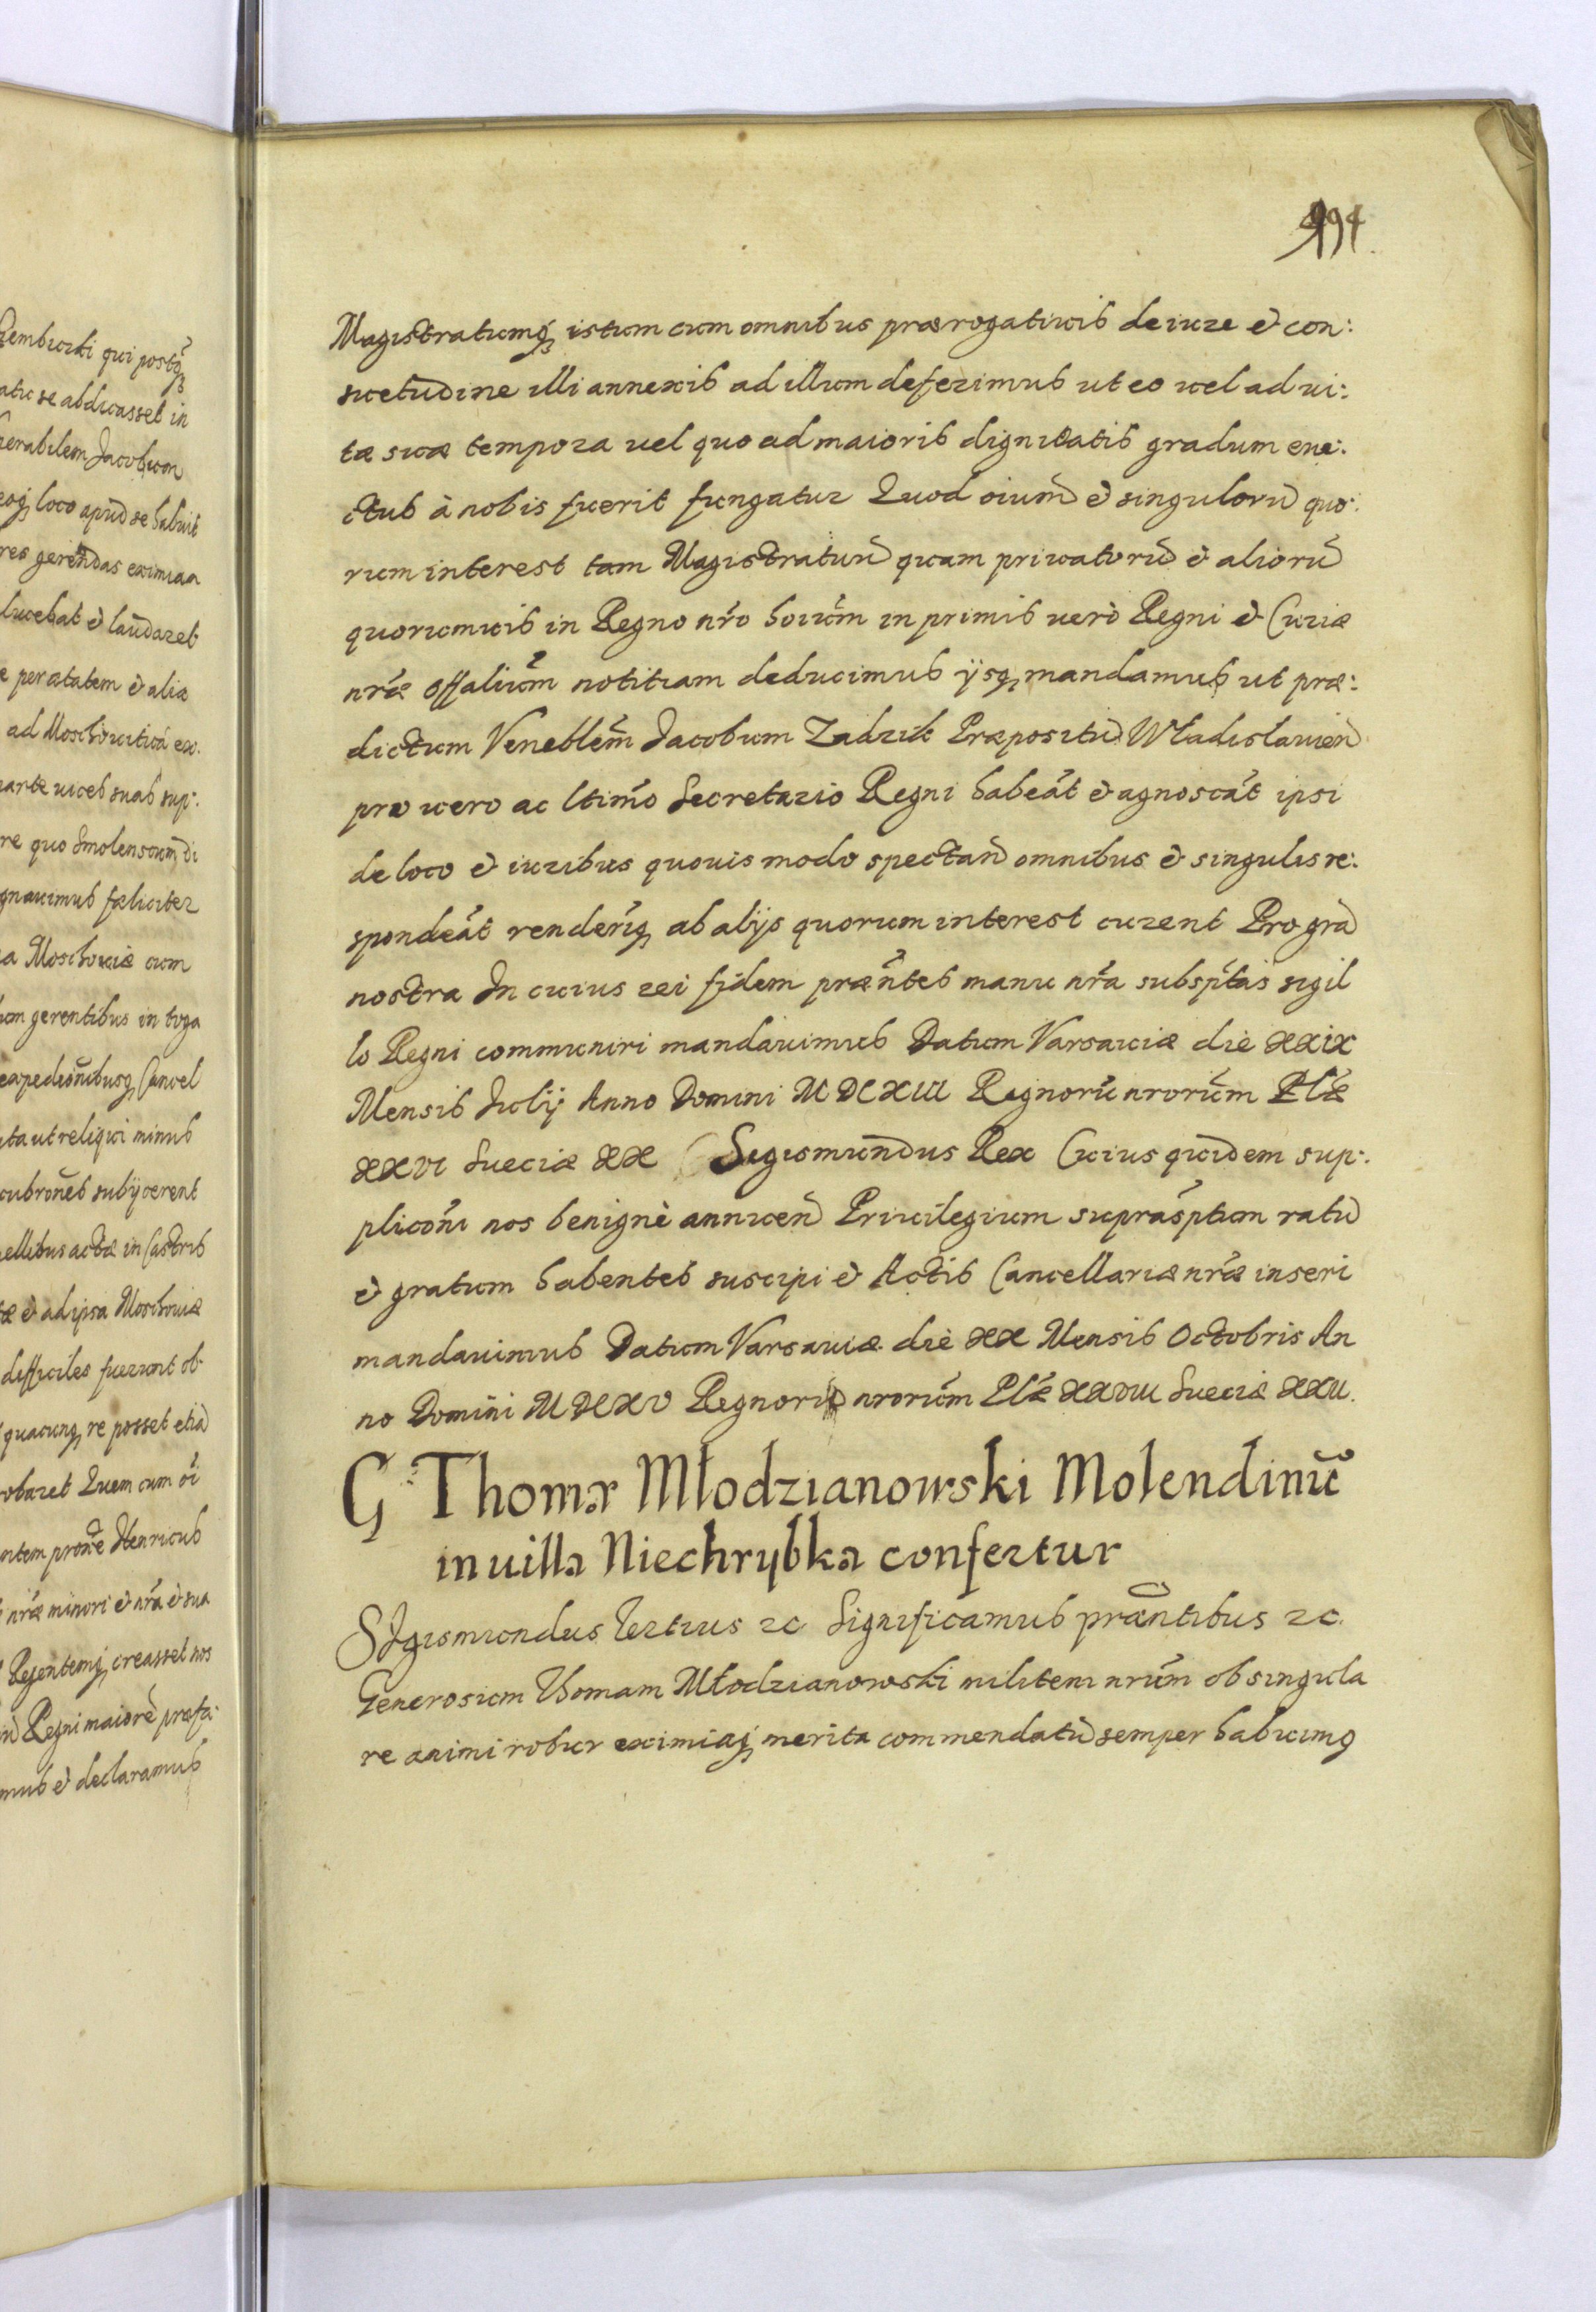 Rembicki qui postq̃
atu se abdicasset in
nerabilem Jacobum
eoq̨ loco apud se habuit
res gerendas eximiaa
lucebat et laudaret
e per ætatem et alia
ad Moschouiticã ex:
parte uices suas sup:
re quo Smolenscum di
gnauimus fæliciter
a Moschouiæ cum
um gerentibus in toga
expedionibusq̨ Cancel
ita ut reliqui minus
cubrones subijcerent
ellibus actæ in Castris
æ et ad ipsa Moschouiæ
difficiles fuerunt ob:
quacunq̨ re posset etiã
robaret Quem cum oĩ
ntem prone Henricus
nr̃æ minori et nr̃a et sua
Regentemq̨ creasset nos
Regni maiorẽ præfa:
mus et declaramus
494.
Magistratumq̨ istum cum omnibus prærogatiuis de iure et con:
suetudine illi annexis ad illum deferimus ut eo uel ad ui:
tæ suæ tempora uel quo ad maioris dignitatis gradum eue:
ctus à nobis fuerit fungatur Quod oium et singulorũ quo:
rum interest tam Magistratuũ quam priuatorũ et aliorũ
quorumuis in Regno nr̃o hoĩum in primis uerò Regni et Curiæ
nr̃æ offalium notitiam deducimus ijsq̨ mandamus ut præ:
dictum Veneblem Jacobum Zadzik Præpositũ Wladislauieñ
pro uero ac ltimo Secretario Regni habeãt et agnoscãt ipsi
de loco et iuribus quouis modo spectañ omnibus et singulis re:
spondeãt renderiq̨ ab alijs quorum interest curent Pro grã
nostra In cuius rei fidem præñtes manu nr̃a subsptas sigil
lo Regni communiri mandauimus Datum Varsauiæ die XXIX
Mensis Julij Anno Domini MDCXIII Regnorũ nrorum Plæ
XXVI Sueciæ XX Sigismundus Rex Cuius quidem sup:
pliconi nos benignè annueñ Priuilegium suprasptum ratũ
et gratum habentes suscipi et Actis Cancellariæ nr̃æ inseri
mandauimus Datum Varsauiæ die XX Mensis Octobris An
no Domini MDCXV Regnorũ nrorum Plæ XXVIII Sueciæ XXII.
G: Thomæ Młodzianowski Molendinũ
in uilla Niechrybka confertur
SIgismundus Tertius &c. Significamus præntibus &c.
Generosum Thomam Młodzianowski militem nrum ob singula
re animi robur eximiaq̨ merita commendatũ semper habuimq